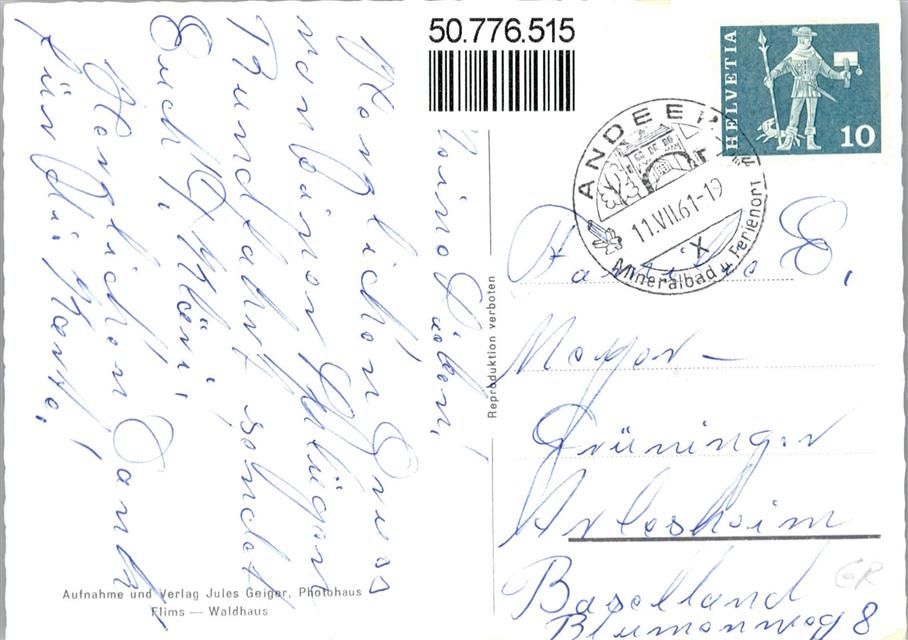 50.776.515
HELVETIA
10
ANDEER
11.VII.61-19
X
Mineralbad u Ferienort
Meine Lieben!
Herzlichen Gruss
von einer
Rundfahrt sendet
Euch
Herzlichen Dank
für die Karte.
Reproduktion verboten
Familie E.
Meyer –
Grüninger
Arlesheim
Baselland
Blumenweg 8
GR
Aufnahme und Verlag Jules Geiger, Photohaus
Flims — Waldhaus